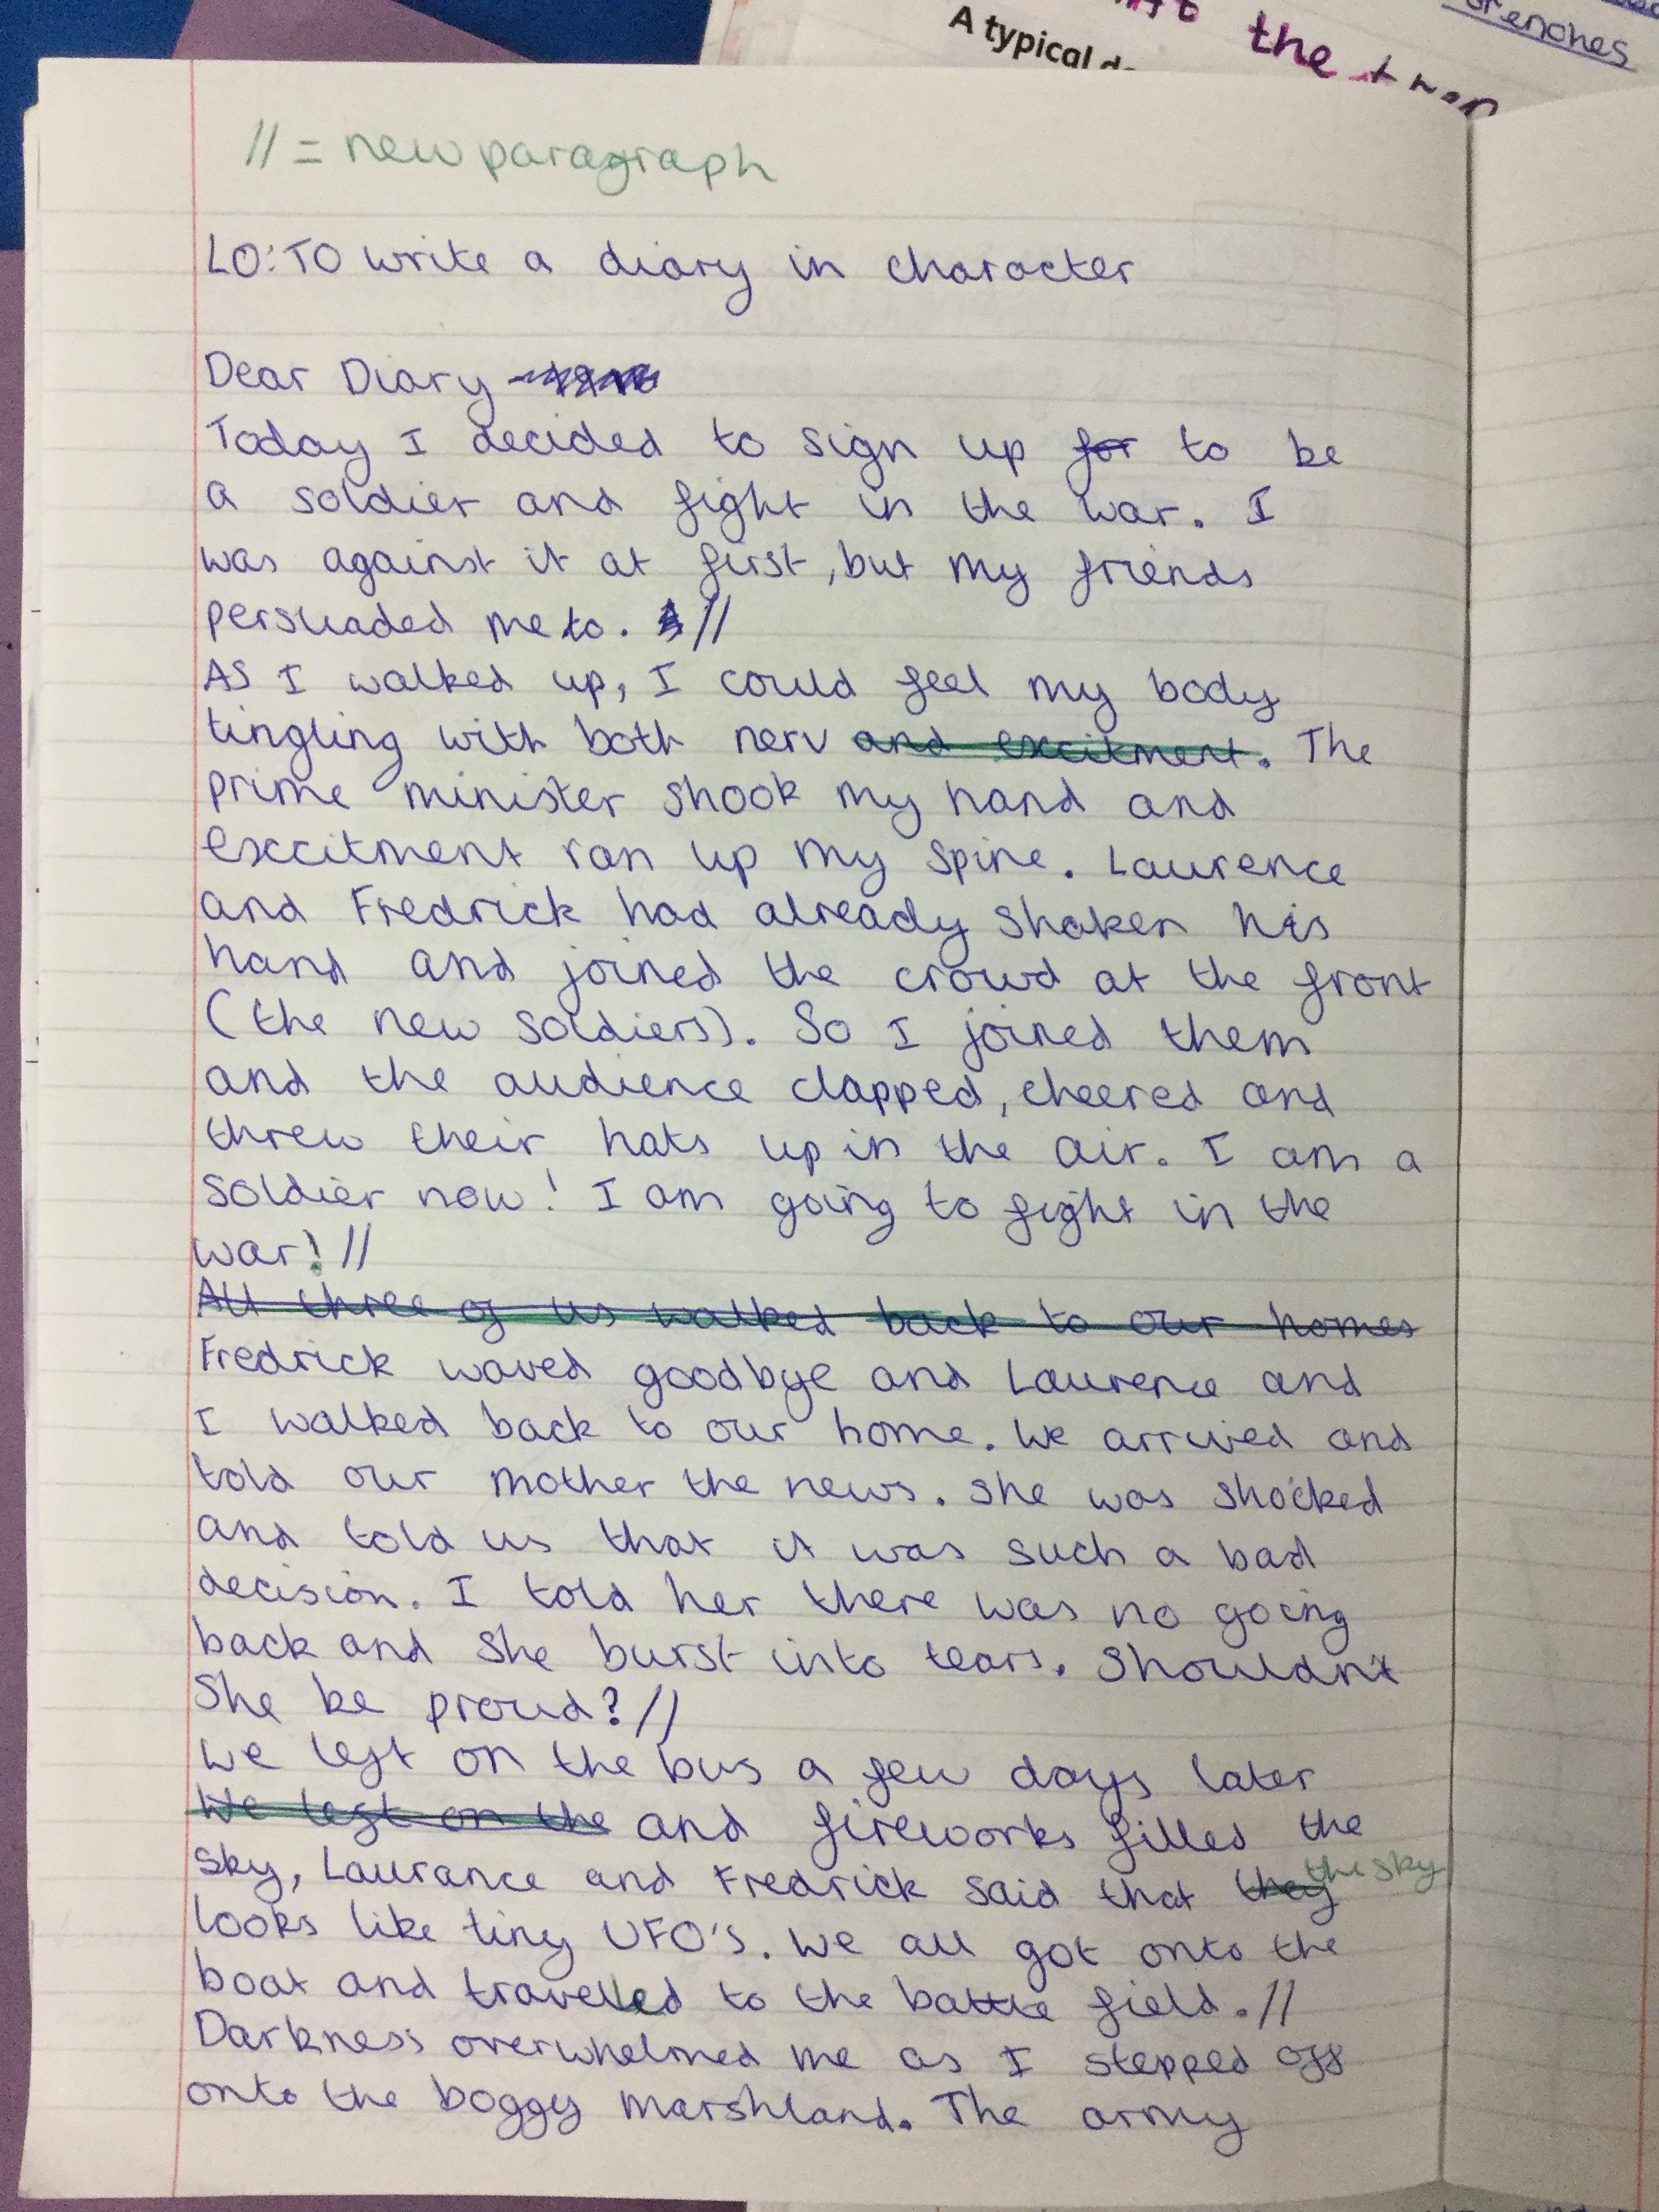 A typical
the
trenches
// = new paragraph
LO: TO write a diary in character
Dear Diary
Today I decided to sign up for to be
a soldier and fight in the war. I
was against it at first, but my friends
persuaded me to. //
As I walked up, I could feel my body
tingling with both nerv and excitment. The
prime minister shook my hand and
excitment ran up my spine. Laurence
and Fredrick had already shaken his
hand and joined the crowd at the front
(the new soldiers). So I joined them
and the audience clapped, cheered and
threw their hats up in the air. I am a
soldier now! I am going to fight in the
war! //
All three of us walked back to our homes
Fredrick waved goodbye and Laurence and
I walked back to our home. We arrived and
told our mother the news. She was shocked
and told us that it was such a bad
decision. I told her there was no going
back and she burst into tears. Shouldn't
She be proud? //
We left on the bus a few days later
We left on the and fireworks filled the
sky, Laurance and Fredrick said that they the sky
looks like tiny UFO's. We all got onto the
boat and travelled to the battle field. //
Darkness overwhelmed me as I stepped off
onto the boggy marshland. The army